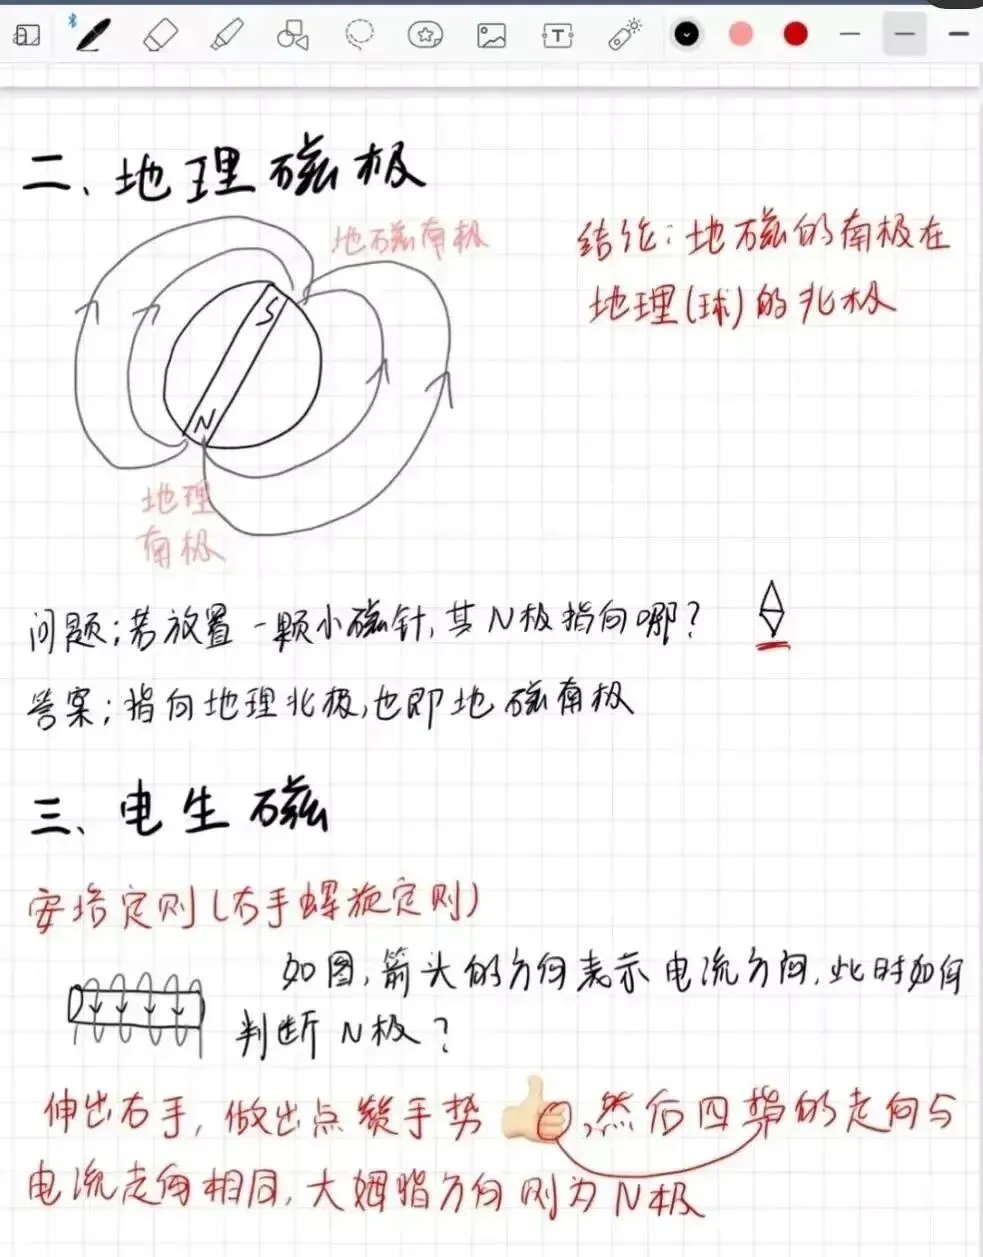 二、地理磁极
地磁南极
结论：地磁的南极在
地理(球)的北极
S
N
地理
南极
问题：若放置一颗小磁针，其N极指向哪？
答案：指向地理北极，也即地磁南极
三、电生磁
安培定则(右手螺旋定则)
如图，箭头的方向表示电流方向，此时如何
判断N极？
伸出右手，做出点赞手势👍，然后四指的走向与
电流走向相同，大姆指方向则为N极